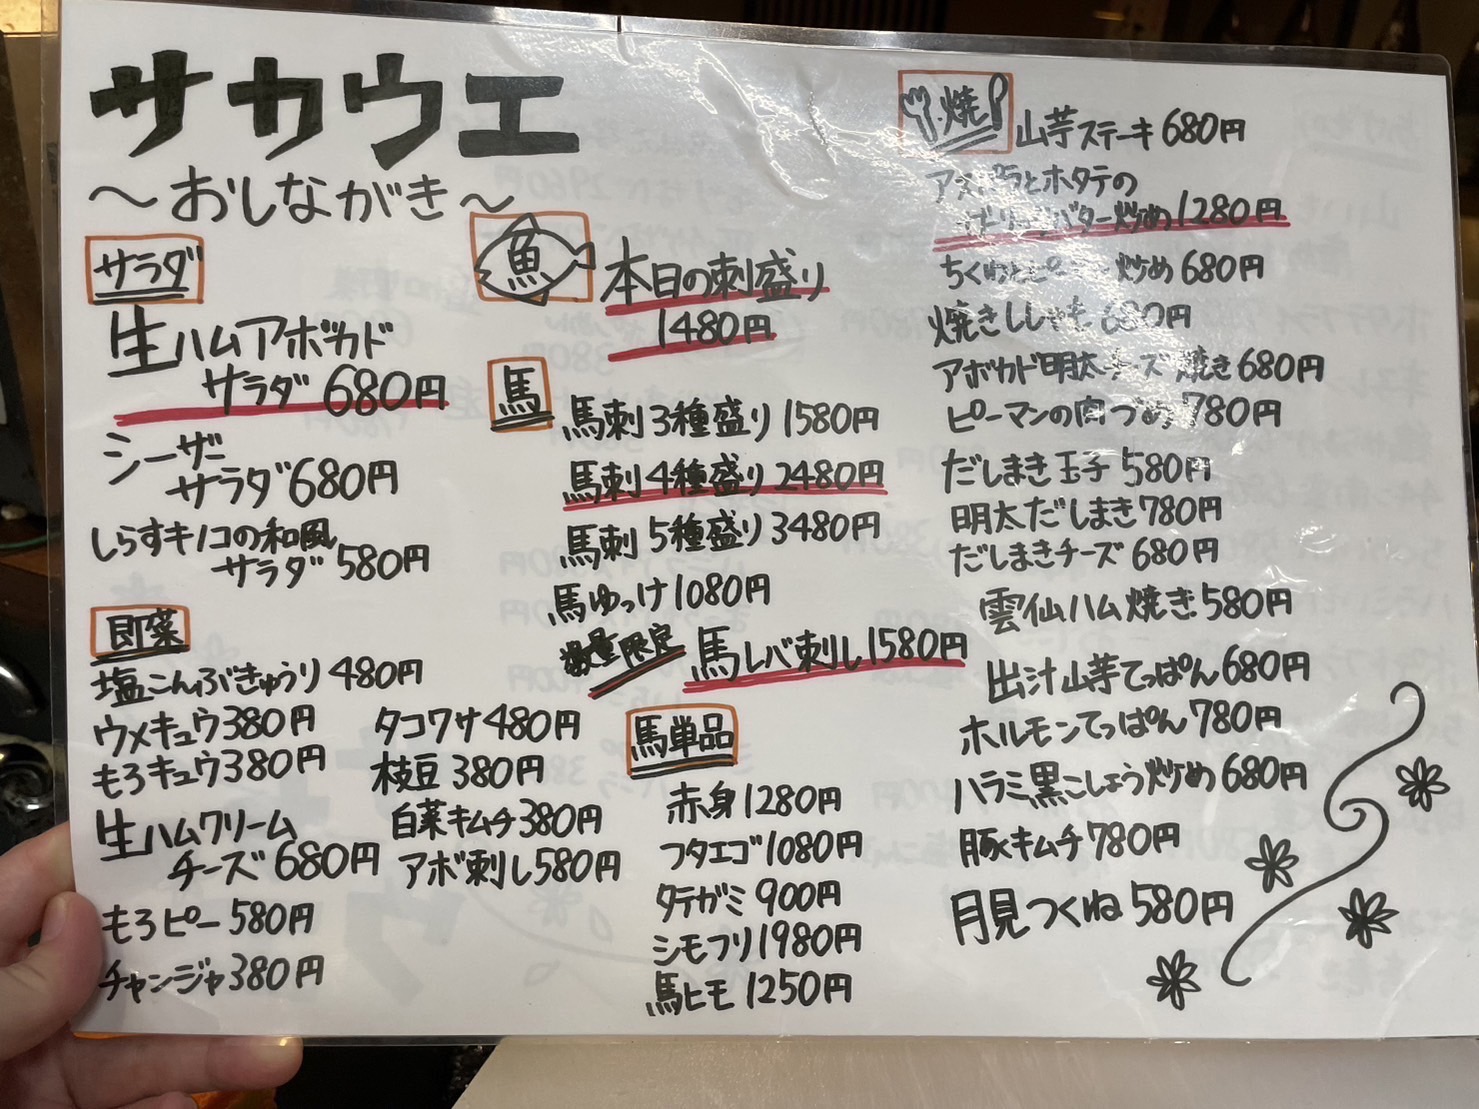 サカウエ
～おしながき～
サラダ
生ハムアボカド
サラダ 680円
シーザー
サラダ 680円
しらすキノコの和風
サラダ 580円
即菜
塩こんぶきゅうり 480円
ウメキュウ 380円
もろキュウ 380円
生ハムクリーム
チーズ 680円
もろピー 580円
チャンジャ 380円
タコワサ 480円
枝豆 380円
白菜キムチ 380円
アボ刺し 580円
魚
本日の刺盛り
1480円
馬
馬刺 3種盛り 1580円
馬刺 4種盛り 2480円
馬刺 5種盛り 3480円
馬ゆっけ 1080円
数量限定
馬レバ刺し 1580円
馬単品
赤身 1280円
フタエゴ 1080円
タテガミ 900円
シモフリ 1980円
馬ヒモ 1250円
焼
山芋ステーキ 680円
アスパラとホタテの
バター炒め 1280円
炒め 680円
焼きししゃも 680円
アボカド明太チーズ焼き 680円
ピーマンの肉づめ 780円
だしまき玉子 580円
明太だしまき 780円
だしまきチーズ 680円
雲仙ハム焼き 580円
出汁山芋てっぱん 680円
ホルモンてっぱん 780円
ハラミ黒こしょう炒め 680円
豚キムチ 780円
月見つくね 580円